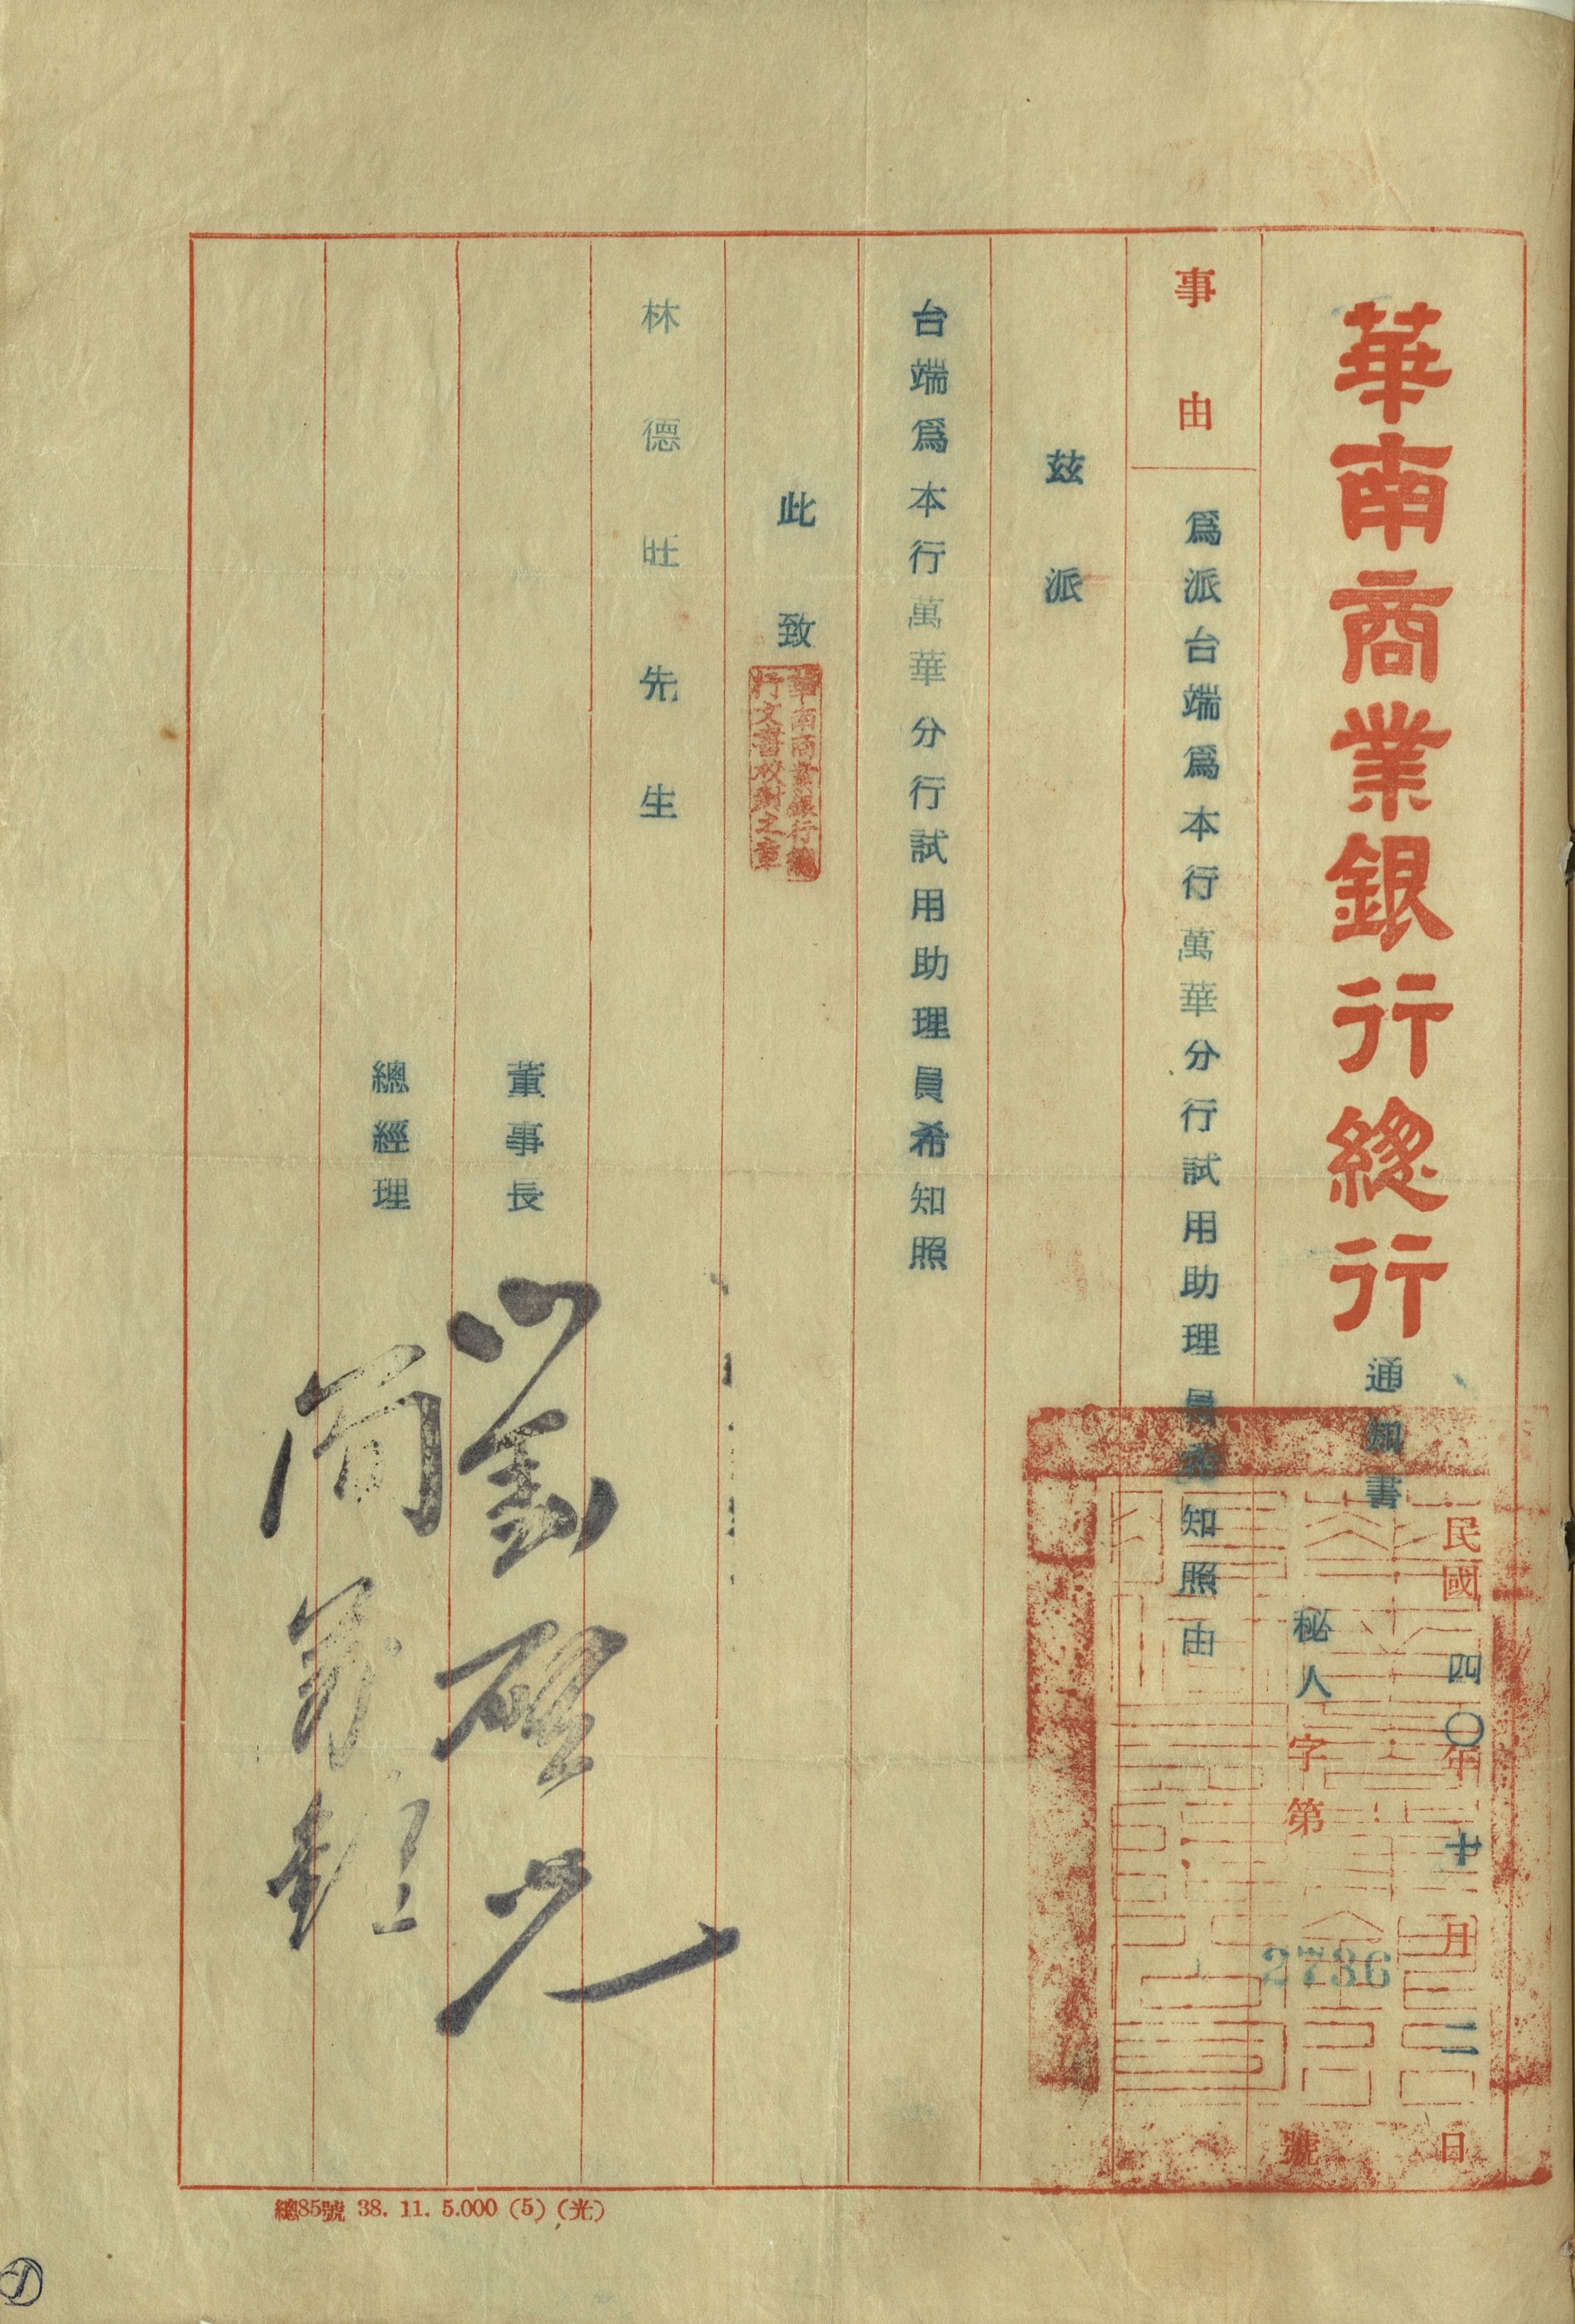 華南商業銀行總行
通知書
民國四〇年十月二日
秘人字第2736號
事由
為派台端為本行萬華分行試用助理員希知照由
茲派
台端為本行萬華分行試用助理員希知照
此致
華南商業銀行總
行文書校對之章
林德旺先生
董事長 劉啓光
總經理
總85號 38. 11. 5.000 (5) (光)